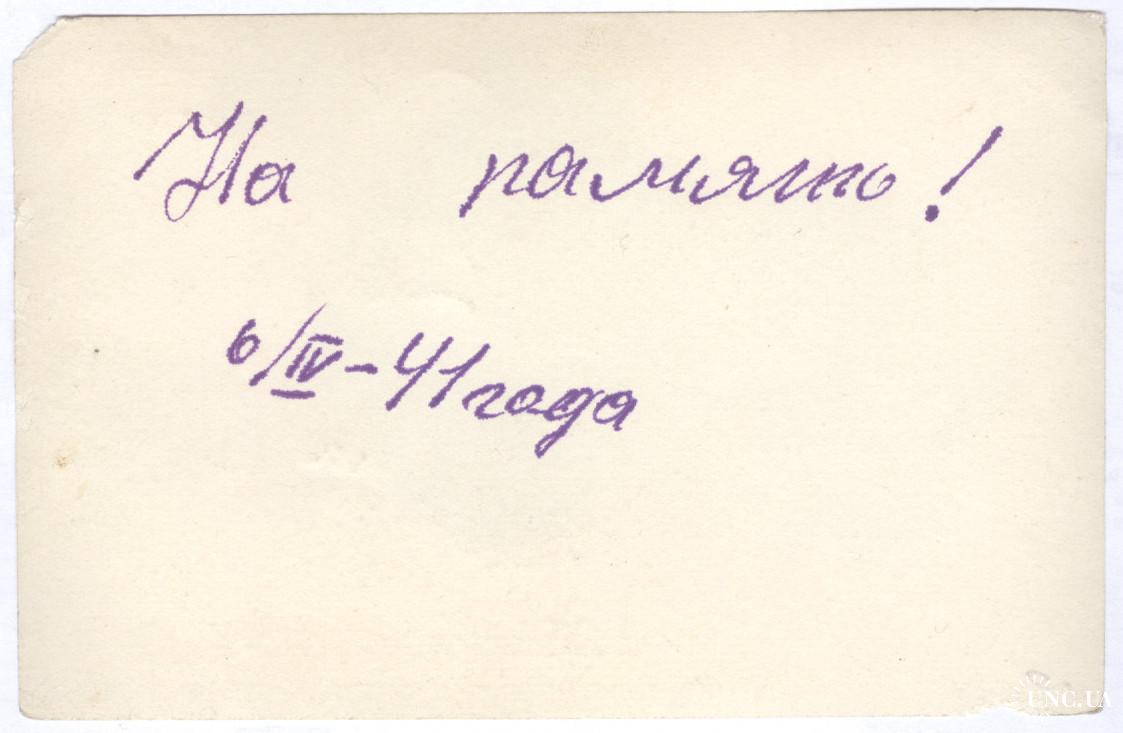 На память!
6/IV-41 года
UNC.UA